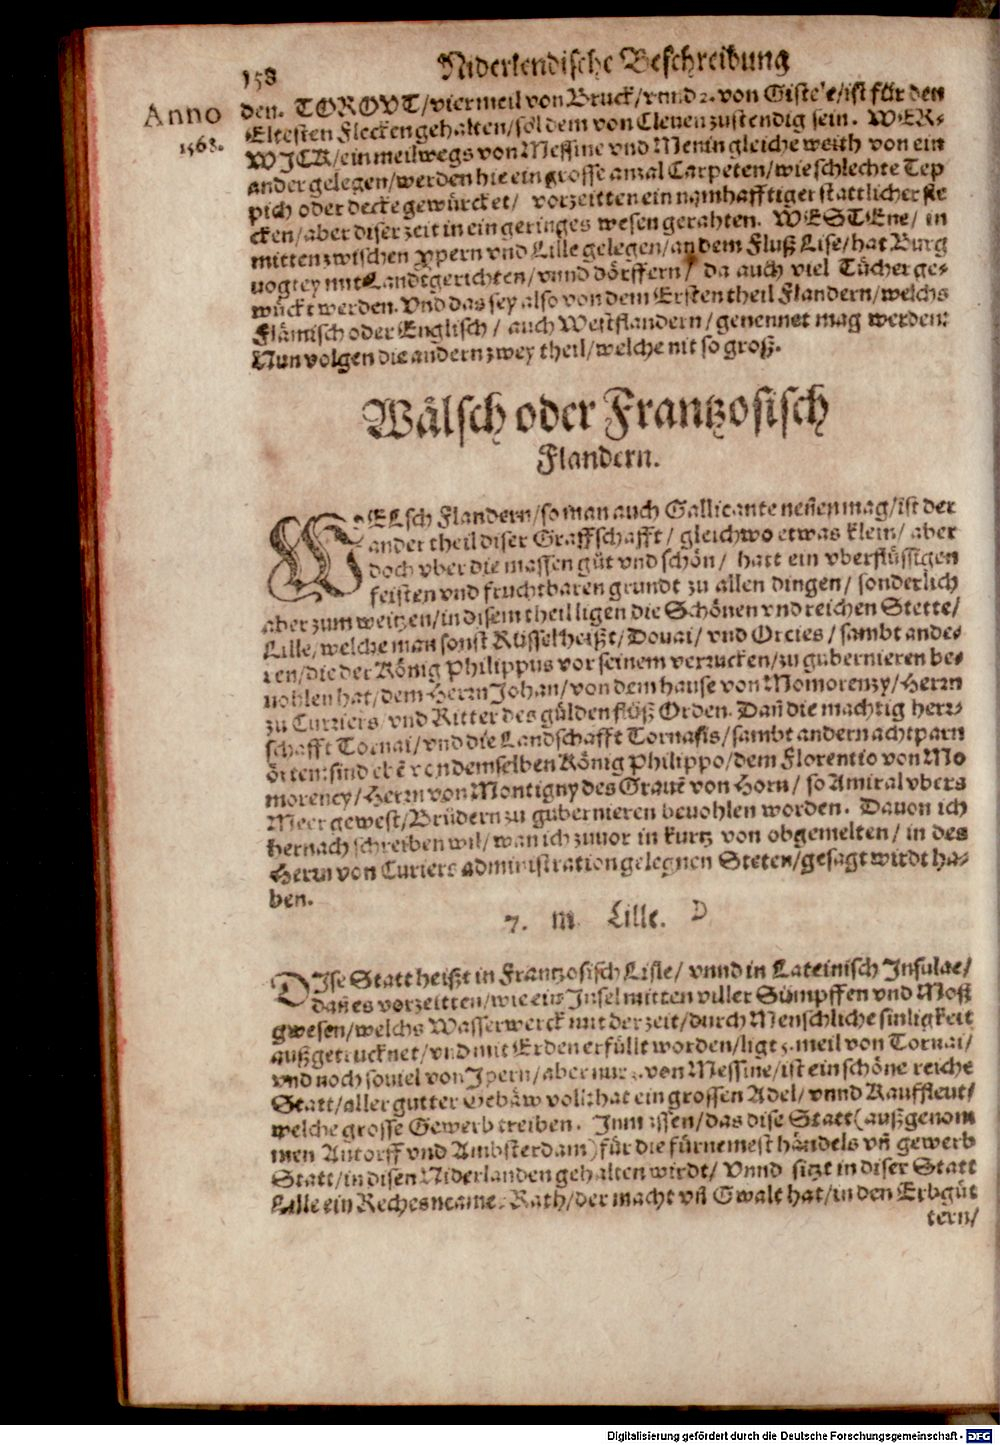 158 Niderlendische Beschreibung
Anno
1568.
den. TOROVT/vier meil von Bruck/vnnd 2. von Gistele/ist für den
Eltesten Flecken gehalten/sol dem von Cleuen zustendig sein. WER-
WICK/ein meilwegs von Messine vnd Menin gleiche weith von ein
ander gelegen/werden hie ein grosse anzal Carpeten/wie schlechte Tep
pich oder decke gewürcket/ vorzeitten ein namhafftiger stattlicher fle
cken/aber diser zeit in ein geringes wesen gerahten. WESTEne/ in
mitten zwischen Ypern vnd Lille gelegen/an dem Fluß Lise/hat Burg
uogtey mit Landtgerichten/vnnd dörffern/ da auch viel Tücher ge-
würckt werden. Vnd das sey also von dem Ersten theil Flandern/welchs
Flämisch oder Englisch/ auch Westflandern/genennet mag werden:
Nun volgen die andern zwey theil/welche nit so groß.
Wälsch oder Frantzosisch
Flandern.
WELsch Flandern/so man auch Gallicante neñen mag/ist der
ander theil diser Graffschafft/ gleichwo etwas klein/ aber
doch vber die massen güt vnd schön/ hatt ein vberflüssigen
feisten vnd fruchtbaren grundt zu allen dingen/ sonderlich
aber zum weitzen/in disem theil ligen die Schönen vnd reichen Stette/
Lille/welche man sonst Rüsselheißt/Douai/ vnd Orcies/ sambt ande-
ren/die der König Philippus vor seinem verrucken/zu gubernieren be-
uohlen hat/dem Herrn Johan/von dem hause von Momorenzy/Herrn
zu Curriers/vnd Ritter des gülden flüß Orden. Dañ die mächtig herr-
schafft Tornai/vnd die Landschafft Tornasis/sambt andern achtparn
örtten: sind ebẽ von demselben König Philippo/dem Florentio von Mo
morency/Herrn von Montigny des Grauẽ von Horn/ so Amiral vbers
Meer gewest/Brüdern zu gubernieren beuohlen worden. Dauon ich
hernach schreiben wil/wan ich zuuor in kurtz von obgemelten/ in des
Herrn von Curiers administration gelegnen Steten/gesagt wirdt ha-
ben.
7. m Lille. D
DIse Statt heißt in Frantzosisch Lisle/ vnnd in Lateinisch Insulae/
dañ es vorzeitten/wie ein Insel mitten viller Sümpffen vnd Moß
gwesen/welchs Wasserwerck mit der zeit/durch Menschliche sinligkeit
außgetrucknet/vnd mit Erden erfüllt worden/ligt 5. meil von Tornai/
vnd noch souiel von Ipern/aber nur von Messine/ist ein schöne reiche
Statt/aller gutter Gebäw voll: hat ein grossen Adel/ vnnd Kauffleut/
welche grosse Gewerb treiben. Inmassen/das dise Statt (außgenom
men Antorff vnd Ambsterdam) für die fürnemest händels vñ gewerb
Statt/in disen Niderlanden gehalten wirdt/ Vnnd sitzt in diser Statt
Lille ein Rechescamer Rath/der macht vñ Gwalt hat/in den Erbgüt
tern/
Digitalisierung gefördert durch die Deutsche Forschungsgemeinschaft - DFG